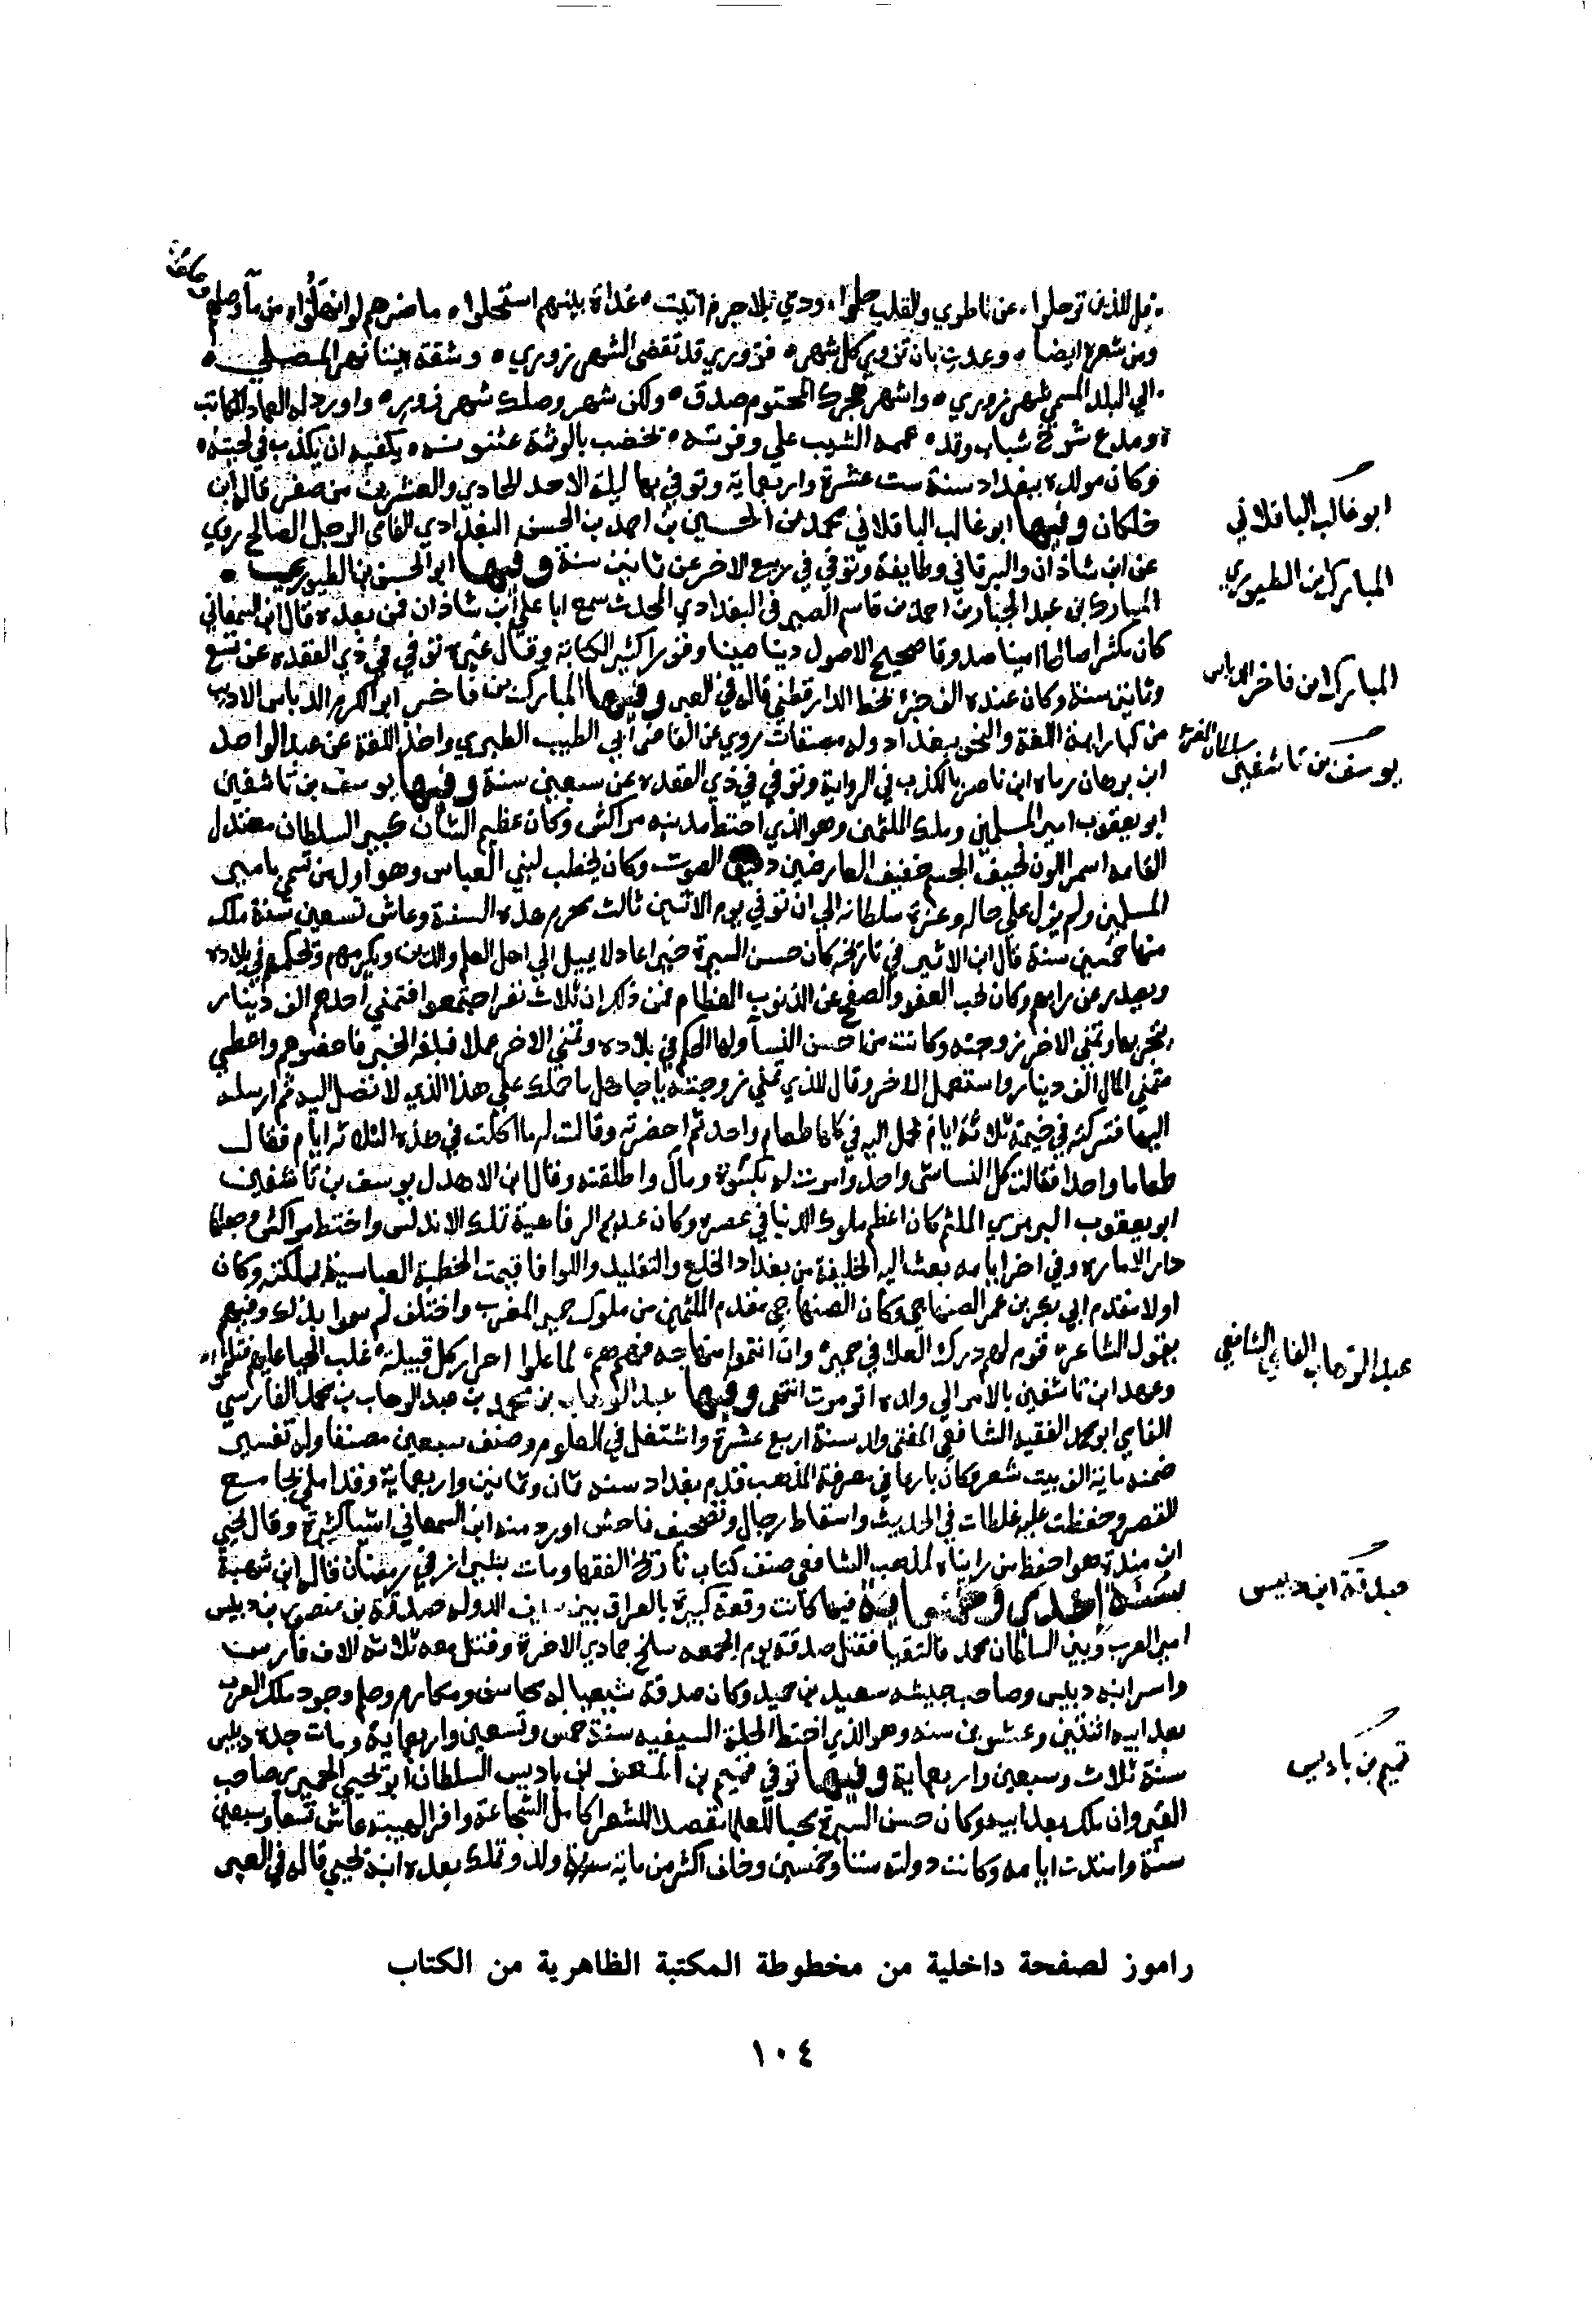 قل للذين ترحلوا عن ناظري والقلب حلوا ودمي بلا جرم اتيت غداة بينهم استحلوا ما ضرهم لو انهلوا من ماء وصلهم
ومن شعره ايضا وعدت بان تزوري كل شهر فزوري قد تقضى الشهر زوري وشقة بيننا نهر المعلى
الي البلد المسمي شهرزوري واشهر هجرك المحتوم صدق ولكن شهر وصلك شهر زور واورد له العماد الكاتب
ومدع شرخ شباب وقد عممه الشيب علي وفرته يخضب بالوشمة عثنونه يكفيه ان يكذب في لحيته
وكان مولده ببغداد سنة ست عشرة واربعماية وتوفي بها ليلة الاحد الحادي والعشرين من صفر قاله ابن
خلكان وفيها ابو غالب الباقلاني محمد بن الحسين بن احمد بن الحسن البغدادي الفامي الرجل الصالح روي
عن ابن شاذان والبرقاني وطايفة وتوفي في ربيع الاخر عن ثمانين سنة وفيها ابو الحسين بن الطيوري
المبارك بن عبد الجبار بن احمد بن قاسم الصيرفي البغدادي المحدث سمع ابا علي ابن شاذان فمن بعده قال ابن السمعاني
كان مكثرا صالحا امينا صدوقا صحيح الاصول دينا صينا وقورا كثير الكتابة وقال غيره توفي في ذي القعده عن تسع
وثمانين سنة وكان عنده الف جزء بخط الدارقطني قاله في العبر وفيها المبارك بن فاخر ابو الكرم الدباس الاديب
من كبار ايمة اللغة والنحو ببغداد وله مصنفات روي عن القاضي ابي الطيب الطبري واخذ اللغة عن عبد الواحد
ابن برهان رماه ابن ناصر بالكذب في الرواية وتوفي في ذي القعده عن سبعين سنة وفيها يوسف بن تاشفين
ابو يعقوب امير المسلمين وملك الملثمين وهو الذي اختط مدينه مراكش وكان عظيم الشان كبير السلطان معتدل
القامه اسمر اللون نحيف الجسم خفيف العارضين دقيق الصوت وكان يخطب لبني العباس وهو اول من تسمي بامير
المسلمين ولم يزل علي حاله وعزة سلطانه الي ان توفي يوم الاثنين ثالث محرم هذه السنة وعاش تسعين سنة ملك
منها خمسين سنة قال ابن الاثير في تاريخه كان حسن السيرة خيرا عادلا يميل الي اهل العلم والدين ويكرمهم ويحكمهم في بلاده
ويصدر عن رايهم وكان يحب العفو والصفح عن الذنوب العظام فمن ذلك ان ثلاث نفر اجتمعوا فتمني احدهم الف دينار
يتجر بها وتمني الاخر زوجته وكانت من احسن النسا ولها الحكم في بلاده وتمني الاخر عملا فبلغه الخبر فاحضرهم واعطي
متمني المال الف دينار واستعمل الاخر وقال للذي تمني زوجته يا جاهل ما حملك علي هذا الذي لا تصل اليه ثم ارسله
اليها فتركته في خيمة ثلاثة ايام يحمل اليه في كلها طعام واحد ثم احضرته وقالت له ما اكلت في هذه الثلاثة ايام فقال
طعاما واحدا فقالت كل النسا شي واحد وامرت له بكسوة ومال واطلقته وقال ابن الاهدل يوسف بن تاشفين
ابو يعقوب البربري الملثم كان اعظم ملوك الدنيا في عصره وكان عديم الرفاهية تملك الاندلس واختط مراكش وجعلها
دار الاماره وفي اخر ايامه بعث اليه الخليفة من بغداد الخلع والتقليد واللوا فاقيمت الخطبة العباسية بمملكته وكان
اولا مقدم ابي بكر بن عمر الصنهاجي وكان الصنهاجي مقدم الملثمين من ملوك حمير المغرب واختلف لم سموا بذلك وفيهم
يقول الشاعر قوم لهم درك العلا في حمير وان انتموا صنهاجه فهم هم لما علوا احراز كل قبيلة غلب الحيا عليهم فتلثموا
وعهد ابن تاشفين بالامر الي ولده اتو موت انتهى وفيها عبد الوهاب بن محمد بن عبد الوهاب بن محمد الفارسي
الفامي ابو محمد الفقيه الشافعي المفتي ولد سنة اربع عشرة واشتغل في العلوم وصنف سبعين مصنفا وله تفسير
ضمنه ماية الف بيت شعر وكان بارعا في معرفة المذهب قدم بغداد سنه ثمان وثمانين واربعماية وقد املي بجامع
القصر وحفظت عليه غلطات في الحديث واسقاط رجال وتصحيف فاحش اورد منه ابن السمعاني اشيا كثيرة وقال يحيي
ابن مندة هو احفظ من رايناه لمذهب الشافعي صنف كتاب تاريخ الفقها ومات بشيراز في رمضان قاله ابن شهبة
سنة احدي وخمسماية فيها كانت وقعة كبيرة بالعراق بين سيف الدوله صدقة بن منصور بن دبيس
امير العرب وبين السلطان محمد فالتقيا فقتل صدقة يوم الجمعه سلخ جمادي الاخرة وقتل معه ثلاثة الاف فارس
واسر ابنه دبيس وصاحب جيشه سعيد بن حميد وكان صدقة شيعيا له محاسن ومكارم وحلم وجود ملك العرب
بعد ابيه اثنتين وعشرين سنه وهو الذي اختط الحلة السيفيه سنة خمس وتسعين واربعماية ومات جده دبيس
سنة ثلاث وسبعين واربعماية وفيها توفي تميم بن المعز بن باديس السلطان ابو يحيي الحميري صاحب
القيروان ملك بعد ابيه وكان حسن السيرة محبا للعلما مقصدا للشعرا كامل الشجاعة وافر الهيبة عاش تسعا وسبعين
سنة وامتدت ايامه وكانت دولته ستا وخمسين وخلف اكثر من ماية ولد وتملك بعده ابنه يحيي قاله في العبر
ابو غالب الباقلاني
المبارك ابن الطيوري
المبارك ابن فاخر الدباس
يوسف بن تاشفين سلطان الغرب
عبد الوهاب الفامي الشافعي
صدقة ابن دبيس
تميم بن باديس
راموز لصفحة داخلية من مخطوطة المكتبة الظاهرية من الكتاب
١٠٤